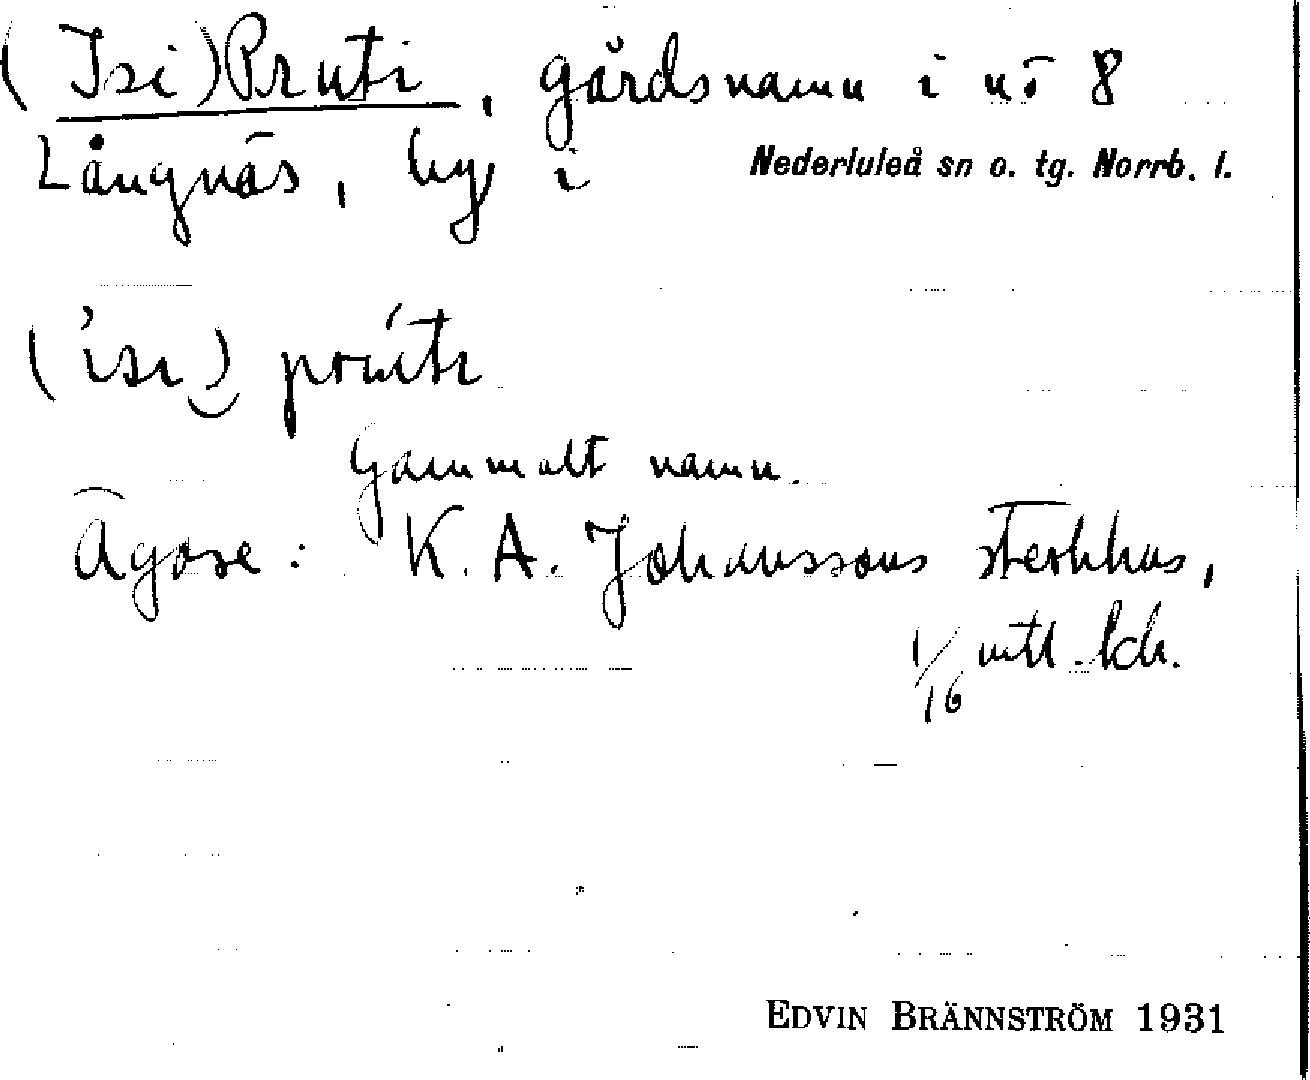 (Isi)Pruti, gårdsnamn i nō 8
Långnäs, by i Nederluleå sn o. tg. Norrb. l.
Gammalt namn.
Ägare: K. A. Johanssons sterbhus,
1/16 mtl.
EDVIN BRÄNNSTRÖM 1931